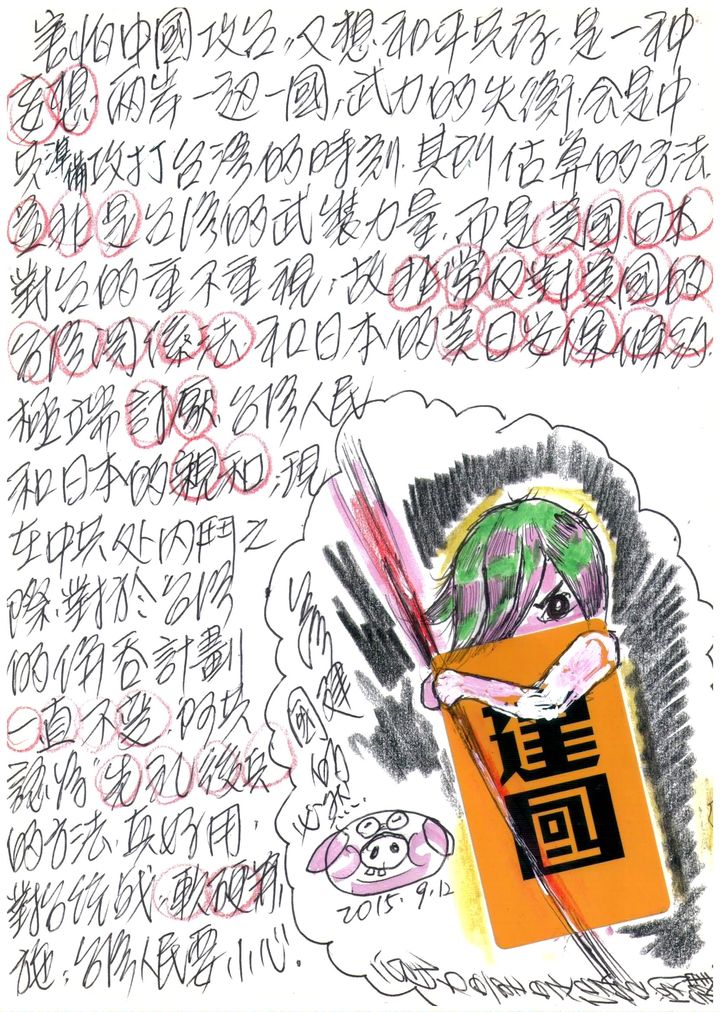 害怕中國攻台,又想和平共存,是一种
妄想,兩岸一边一國,武力的失衡,会是中
共準備攻打台湾的時刻,其則估算的方法,
並非是台湾的武裝力量,而是美國、日本
對台的重不重視,故非常仅對美國的
台湾関係法,和日本的美日安保條約
極端討厭,台湾人民
和日本的親和,現
在中共处內鬥之
際,對於台湾
的併吞計劃
一直不变,阿共
認為"先礼後兵"
的方法,真好用,
對台统战,軟硬兼
施,台湾人民要小心.
台湾建
國的
必然.
建
國
2015.9.12